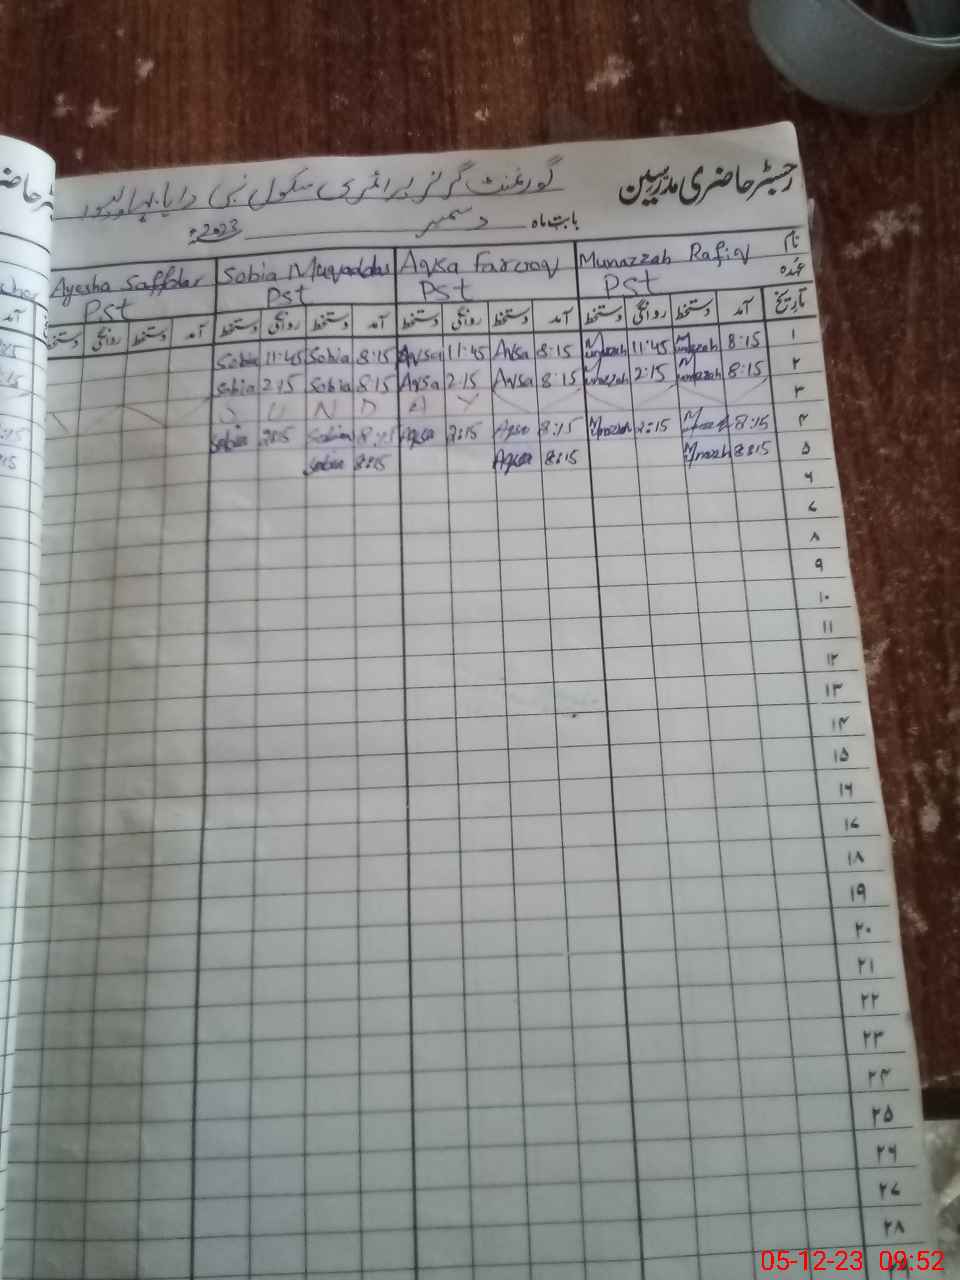 رجسٹر حاضری مدرسین گورنمنٹ گرلز پرائمری سکول نبی
بابت ماہ دسمبر 2023ء
نام Munazzah Rafiq Aqsa Farooq Sobia Muqaddas Ayesha Saffdar
عہدہ Pst Pst Pst Pst
تاریخ آمد دستخط روانگی دستخط آمد دستخط روانگی دستخط آمد دستخط روانگی دستخط آمد دستخط روانگی دستخط
۱ 8:15 Munazzah 11:45 Munazzah 8:15 Aqsa 11:45 Aqsa 8:15 Sobia 11:45 Sobia
۲ 8:15 Munazzah 2:15 Munazzah 8:15 Aqsa 2:15 Aqsa 8:15 Sobia 2:15 Sobia
۳ S U N D A Y
۴ 8:15 2:15 8:15 Aqsa 2:15 Aqsa 8:15 Sobia 2:15 Sobia
۵ 8:15 8:15 Aqsa 8:15 Sobia
۶
۷
۸
۹
۱۰
۱۱
۱۲
۱۳
۱۴
۱۵
۱۶
۱۷
۱۸
۱۹
۲۰
۲۱
۲۲
۲۳
۲۴
۲۵
۲۶
۲۷
۲۸
05-12-23 09:52